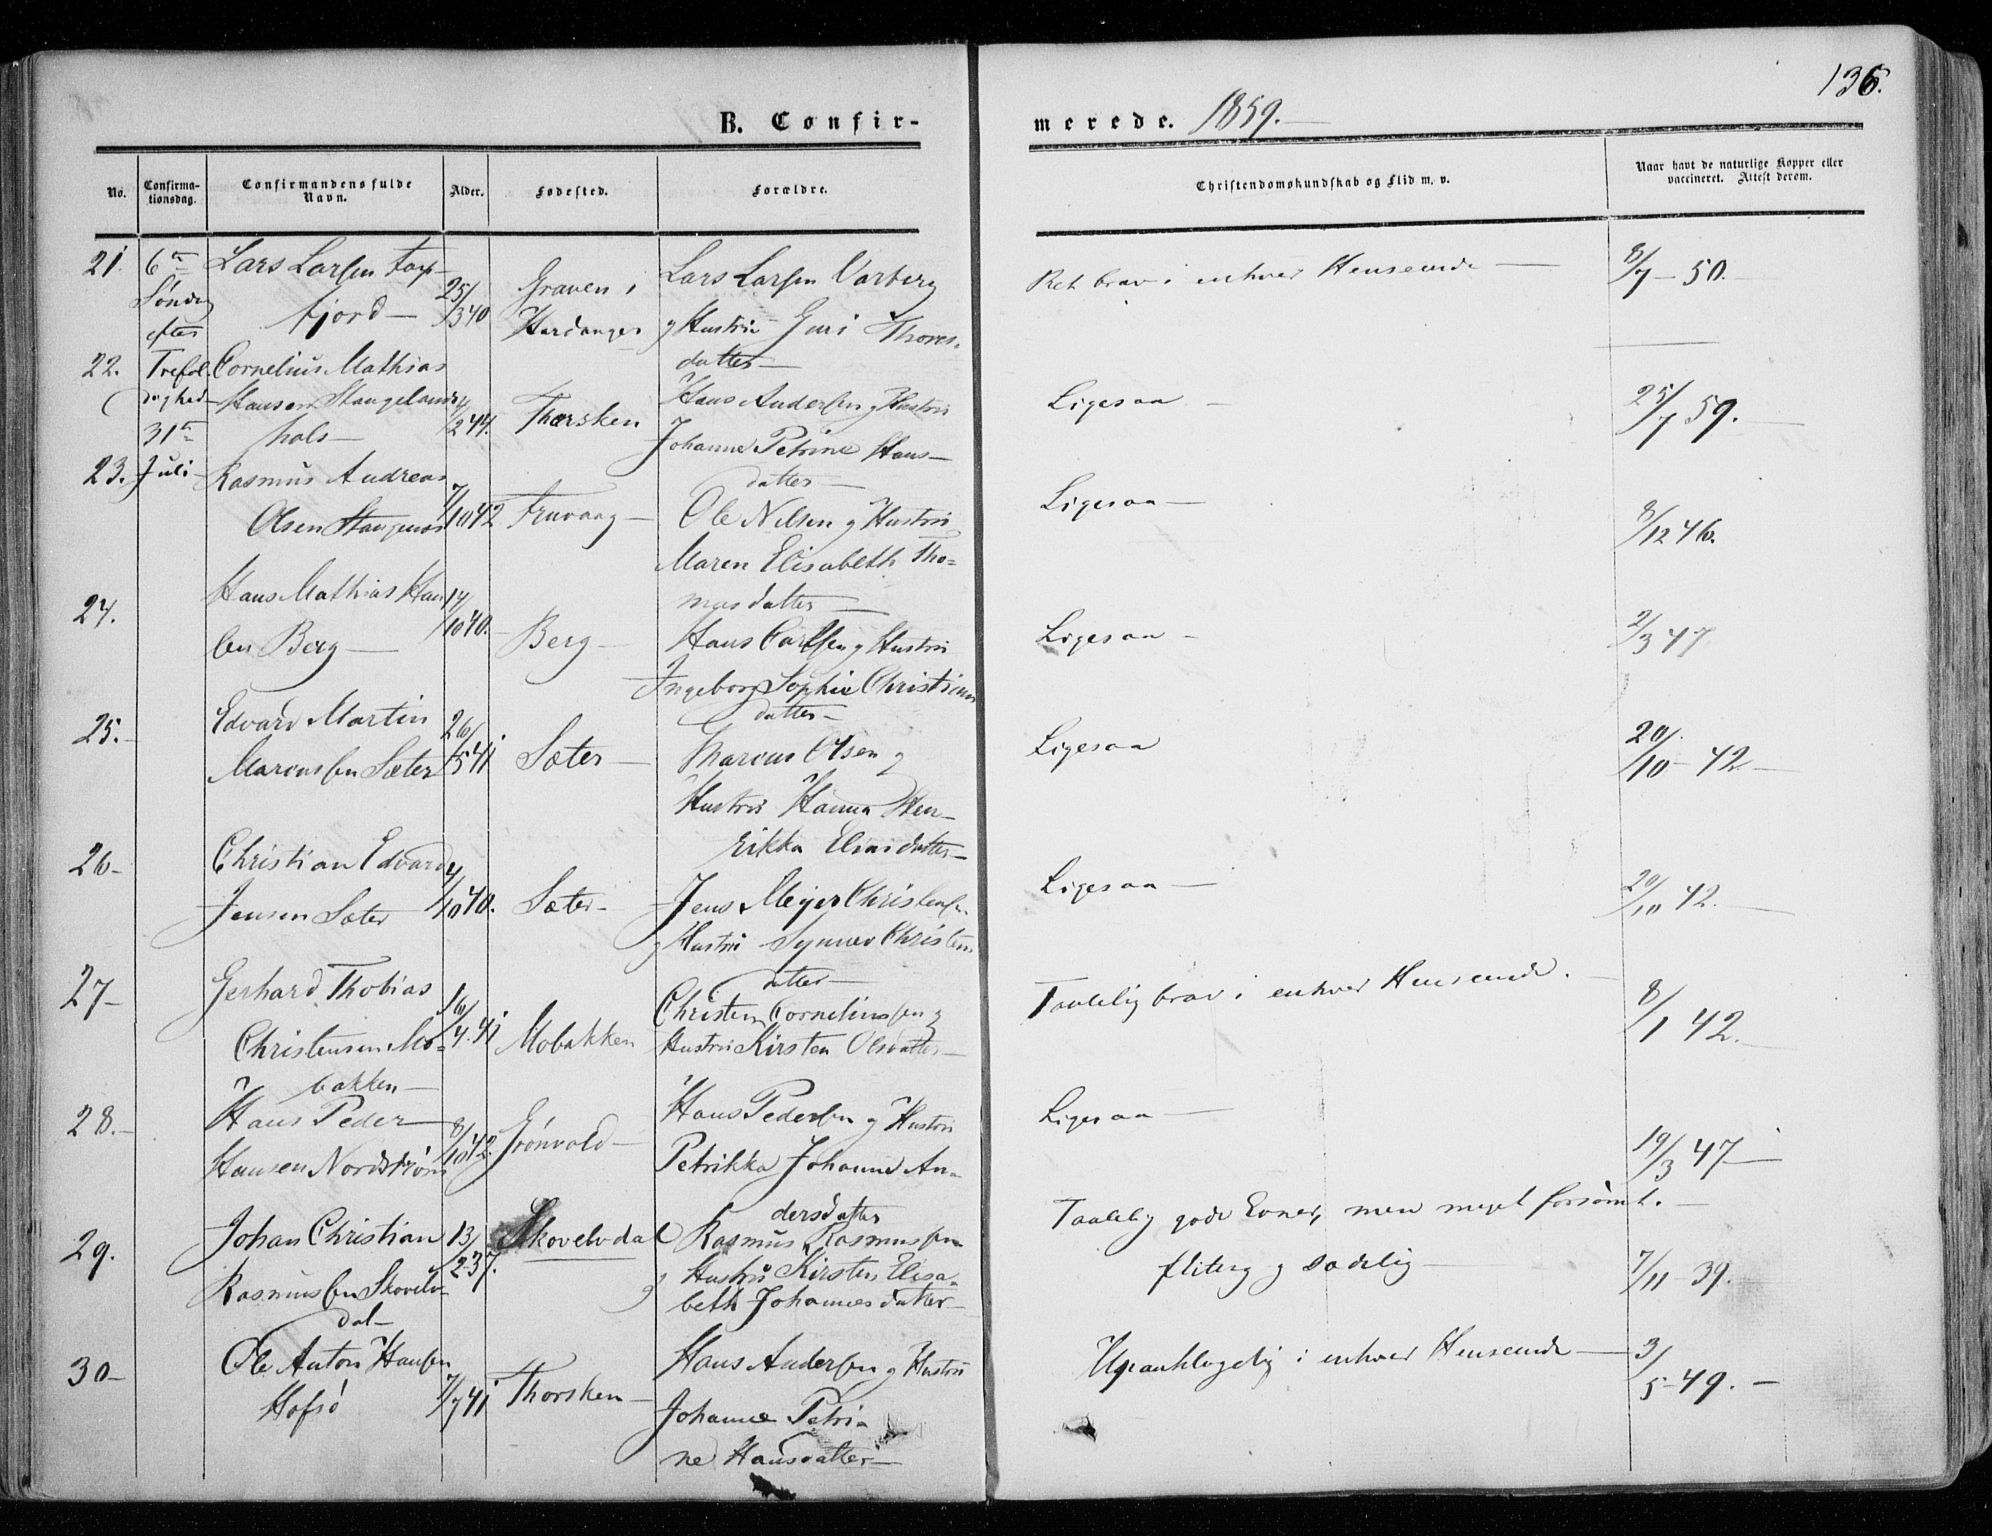 136.
B. Confirmerede. 1859.
No. Confirmationsdag. Confirmandens fulde Navn. Alder. Fødested. Forældre. Christendomskundskab og Flid m. v. Naar havt de naturlige Kopper eller vaccineret. Attest derom.
21. 6te Lars Larsen
Søndag fjord – 25/3 40 Graven i Hardanger Lars Larsen Varberg
efter g Hustru Guri Thores-
datter – Ret brav i enhver Henseende – 8/7 – 50.
22. Trefol Cornelius Mathias
dighed Hansen Stangelands
31te hals – /2 44. Thorsken Hans Andersen g Hustru
Johanne Petrine Hans-
datter – Ligesaa – 25/7 59.
23. Juli – Rasmus Andreas
Olsen Stangnes 7/10 42 Fruvaag – Ole Nilsen g Hustru
Maren Elisabeth Tho-
masdatter – Ligesaa – 8/12 46.
24. Hans Mathias Han
sen Berg – 14/10 40. Berg – Hans Carlsen g Hustru
Ingeborg Sophie Christians
datter – Ligesaa – 2/3 47
25. Edvard Martin
Marcussen Sæter 26/5 41 Sæter – Marcus Olsen g
Hustru Hanna Hen-
rikka Eliasdatter – Ligesaa 20/10 – 42 –
26 – Christian Edvard
Jensen Sæter 4/10 40. Sæter – Jens Meyer Christensen
g Hustru Synnev Christens
datter – Ligesaa – 20/10 42.
27 – Gerhard Thobias
Christensen Mo-
bakken – 16/4 41 Mobakken Christen Corneliussen g
Hustru Kirsten Olsdatter – Taalelig brav i enhver Henseende. 8/1 42.
28. – Hans Peder
Hansen Nordstrøm 8/10 42. Grønvold – Hans Pedersen g Hustru
Petrikka Johanne An-
dersdatter Ligesaa – 19/3 47 –
29. Johan Christian
Rasmussen Skovelv
dal – 13/2 37. Skovelvdal Rasmus Rasmussen
g Hustru Kirsten Elisa-
beth Johannesdatter – Taalelig gode Evner, men meget forsømt. –
flitig g sædelig – 7/11 39.
30 – Ole Anton Hansen
Hofsø 7/7 41 Thorsken – Hans Andersen g Hustru
Johanne Petri-
ne Hansdatter – Upaaklagelig i enhver Henseende – 3/5 – 49. –